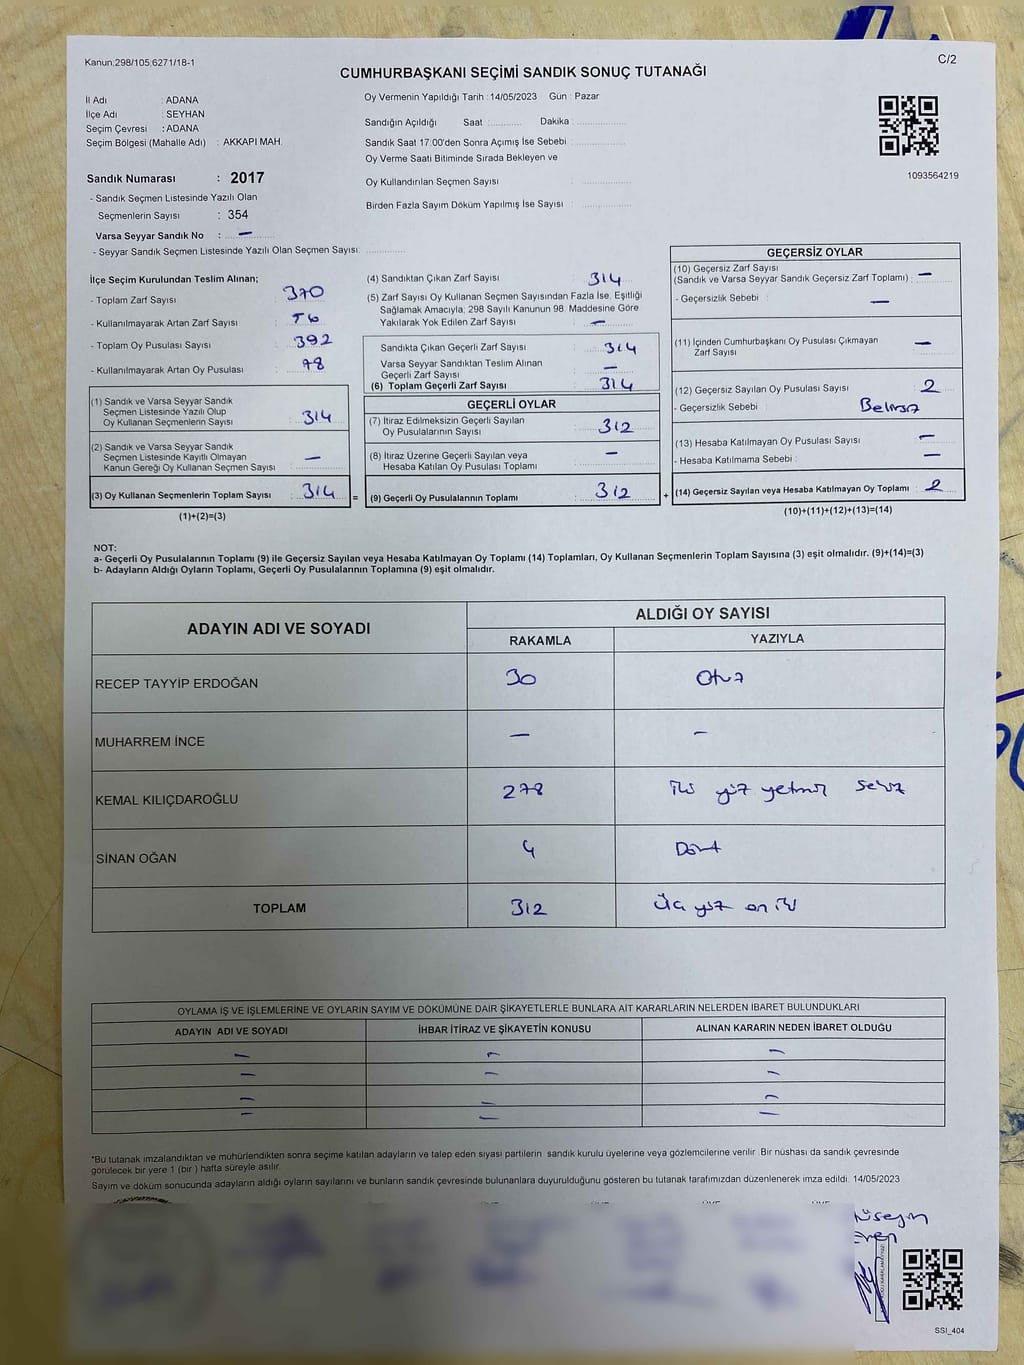 Kanun;298/105;6271/18-1
C/2
CUMHURBAŞKANI SEÇİMİ SANDIK SONUÇ TUTANAĞI
İl Adı : ADANA
İlçe Adı : SEYHAN
Seçim Çevresi : ADANA
Seçim Bölgesi (Mahalle Adı) : AKKAPI MAH.
Oy Vermenin Yapıldığı Tarih : 14/05/2023 Gün : Pazar
Sandığın Açıldığı Saat : Dakika :
Sandık Saat 17:00'den Sonra Açımış İse Sebebi :
Oy Verme Saati Bitiminde Sırada Bekleyen ve
Oy Kullandırılan Seçmen Sayısı :
Birden Fazla Sayım Döküm Yapılmış İse Sayısı :
1093564219
Sandık Numarası : 2017
- Sandık Seçmen Listesinde Yazılı Olan
Seçmenlerin Sayısı : 354
Varsa Seyyar Sandık No : —
- Seyyar Sandık Seçmen Listesinde Yazılı Olan Seçmen Sayısı:
İlçe Seçim Kurulundan Teslim Alınan;
- Toplam Zarf Sayısı 370
- Kullanılmayarak Artan Zarf Sayısı
- Toplam Oy Pusulası Sayısı 392
- Kullanılmayarak Artan Oy Pusulası 78
(1) Sandık ve Varsa Seyyar Sandık
Seçmen Listesinde Yazılı Olup
Oy Kullanan Seçmenlerin Sayısı : 314
(2) Sandık ve Varsa Seyyar Sandık
Seçmen Listesinde Kayıtlı Olmayan
Kanun Gereği Oy Kullanan Seçmen Sayısı : —
(3) Oy Kullanan Seçmenlerin Toplam Sayısı : 314 =
(1)+(2)=(3)
(4) Sandıktan Çıkan Zarf Sayısı : 314
(5) Zarf Sayısı Oy Kullanan Seçmen Sayısından Fazla İse, Eşitliği
Sağlamak Amacıyla; 298 Sayılı Kanunun 98. Maddesine Göre
Yakılarak Yok Edilen Zarf Sayısı : —
Sandıkta Çıkan Geçerli Zarf Sayısı : 314
Varsa Seyyar Sandıktan Teslim Alınan
Geçerli Zarf Sayısı : —
(6) Toplam Geçerli Zarf Sayısı : 314
GEÇERLİ OYLAR
(7) İtiraz Edilmeksizin Geçerli Sayılan
Oy Pusulalarının Sayısı : 312
(8) İtiraz Üzerine Geçerli Sayılan veya
Hesaba Katılan Oy Pusulası Toplamı : —
(9) Geçerli Oy Pusulalarının Toplamı : 312 +
GEÇERSİZ OYLAR
(10) Geçersiz Zarf Sayısı
(Sandık ve Varsa Seyyar Sandık Geçersiz Zarf Toplamı) : —
- Geçersizlik Sebebi : —
(11) İçinden Cumhurbaşkanı Oy Pusulası Çıkmayan
Zarf Sayısı : —
(12) Geçersiz Sayılan Oy Pusulası Sayısı : 2
- Geçersizlik Sebebi :
(13) Hesaba Katılmayan Oy Pusulası Sayısı : —
- Hesaba Katılmama Sebebi : —
(14) Geçersiz Sayılan veya Hesaba Katılmayan Oy Toplamı : 2
(10)+(11)+(12)+(13)=(14)
NOT:
a- Geçerli Oy Pusulalarının Toplamı (9) ile Geçersiz Sayılan veya Hesaba Katılmayan Oy Toplamı (14) Toplamları, Oy Kullanan Seçmenlerin Toplam Sayısına (3) eşit olmalıdır. (9)+(14)=(3)
b- Adayların Aldığı Oyların Toplamı, Geçerli Oy Pusulalarının Toplamına (9) eşit olmalıdır.
ADAYIN ADI VE SOYADI ALDIĞI OY SAYISI
RAKAMLA YAZIYLA
RECEP TAYYİP ERDOĞAN 30 Otuz
MUHARREM İNCE — —
KEMAL KILIÇDAROĞLU 278 iki yüz yetmiş sekiz
SİNAN OĞAN 4 Dört
TOPLAM 312 Üç yüz on iki
OYLAMA İŞ VE İŞLEMLERİNE VE OYLARIN SAYIM VE DÖKÜMÜNE DAİR ŞİKAYETLERLE BUNLARA AİT KARARLARIN NELERDEN İBARET BULUNDUKLARI
ADAYIN ADI VE SOYADI İHBAR İTİRAZ VE ŞİKAYETİN KONUSU ALINAN KARARIN NEDEN İBARET OLDUĞU
— — —
— — —
— — —
— — —
*Bu tutanak imzalandıktan ve mühürlendikten sonra seçime katılan adayların ve talep eden siyasi partilerin sandık kurulu üyelerine veya gözlemcilerine verilir. Bir nüshası da sandık çevresinde
görülecek bir yere 1 (bir ) hafta süreyle asılır.
Sayım ve döküm sonucunda adayların aldığı oyların sayılarını ve bunların sandık çevresinde bulunanlara duyurulduğunu gösteren bu tutanak tarafımızdan düzenlenerek imza edildi. 14/05/2023
Hüseyin
Eren
SSI_404